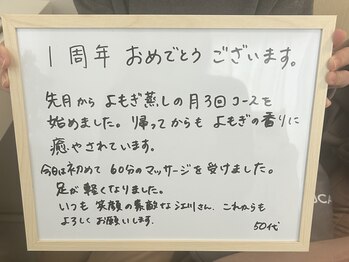 1周年 おめでとう ございます。
先月から よもぎ蒸しの 月3回 コースを
始めました。帰ってからも よもぎの香りに
癒やされています。
今日は初めて 60分のマッサージを受けました。
足が軽くなりました。
いつも 笑顔の素敵な江川さん、これからも
よろしく お願いします。
50代